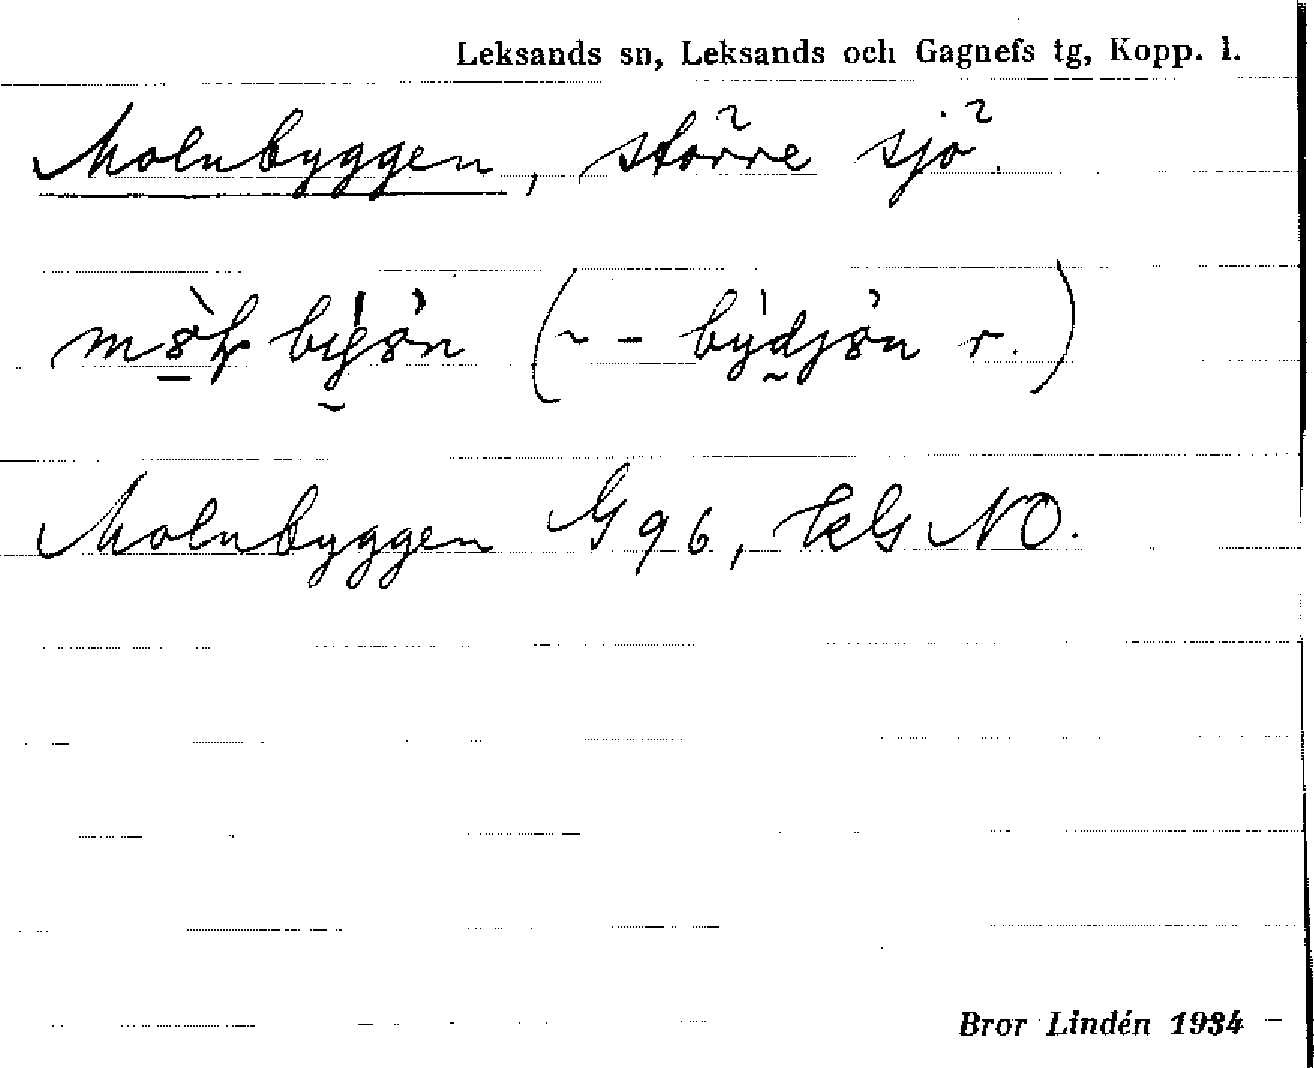 Leksands sn, Leksands och Gagnefs tg, Kopp. l.
Molnbyggen, större sjö.
Molnbyggen G 96, kG NO.
Bror Lindén 1934 –